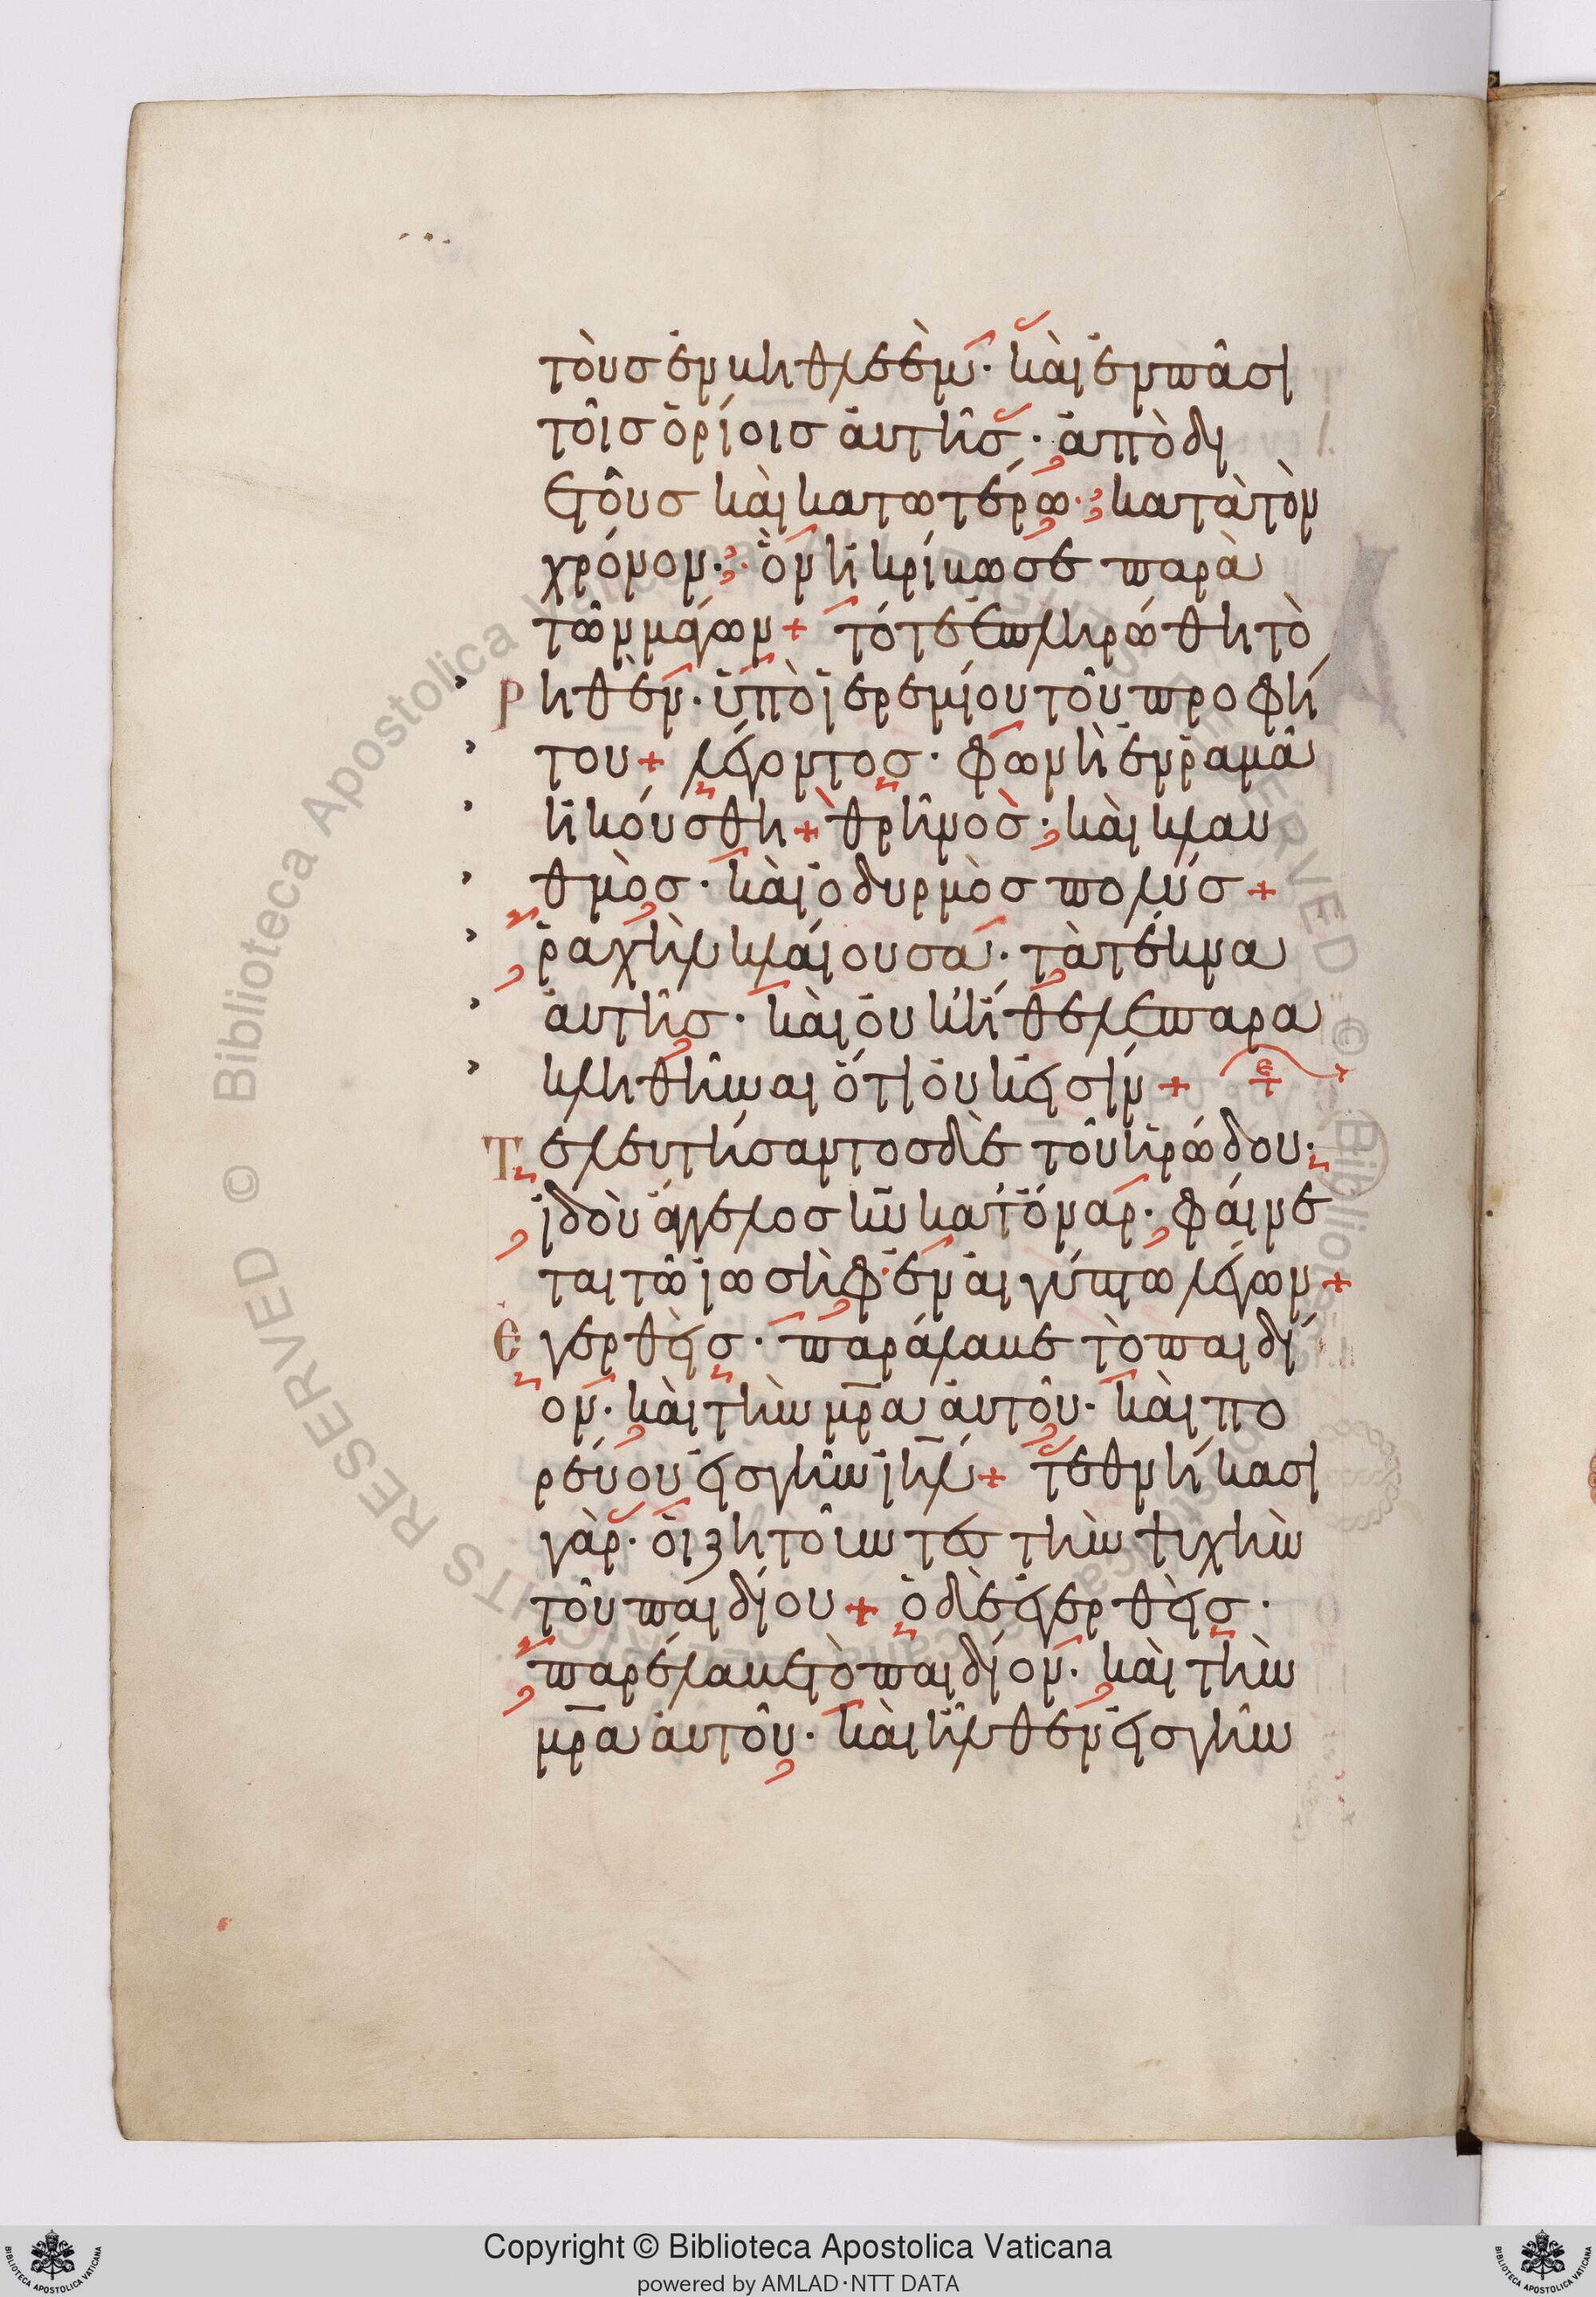 τοὺς ἐν βηθλεὲμ· καὶ ἐν πᾶσι
τοῖς ὁρίοις αὐτῆς· ἀπὸ δι
ετοῦς καὶ κατωτέρω· κατὰ τὸν
χρόνον· ὃν ἠκρίβωσε παρὰ
τῶν μάγων + τότε ἐπληρώθη τὸ
ῥηθὲν· ὑπὸ ἰερεμίου τοῦ προφή
του + λέγοντος· φωνὴ ἐν ῥαμᾶ
ἠκούσθη + θρῆνος· καὶ κλαυ
θμὸς· καὶ ὀδυρμὸς πολύς +
ῥαχὴλ κλαίουσα· τὰ τέκνα
αὐτῆς· καὶ οὐκ ἤθελε παρα
κληθῆναι ὅτι οὐκ εἰσίν +
Τελευτήσαντος δὲ τοῦ ἡρώδου·
ἰδοὺ ἄγγελος κ̅υ̅ κατ' ὄναρ· φαίνε
ται τῶ ἰωσὴφ· ἐν αἰγύπτω λέγων +
Ἐγερθεὶς· παράλαβε τὸ παιδί
ον· καὶ τὴν μ̅ρ̅α αὐτοῦ· καὶ πο
ρεύου εἰς γῆν ι̅η̅λ̅ + τεθνήκασι
γὰρ· οἱ ζητοῦντες τὴν ψυχὴν
τοῦ παιδίου + ὁ δὲ ἐγερθεὶς·
παρέλαβε τὸ παιδίον· καὶ τὴν
μ̅ρ̅α αὐτοῦ· καὶ ἦλθεν εἰς γῆν
Copyright © Biblioteca Apostolica Vaticana
powered by AMLAD·NTT DATA